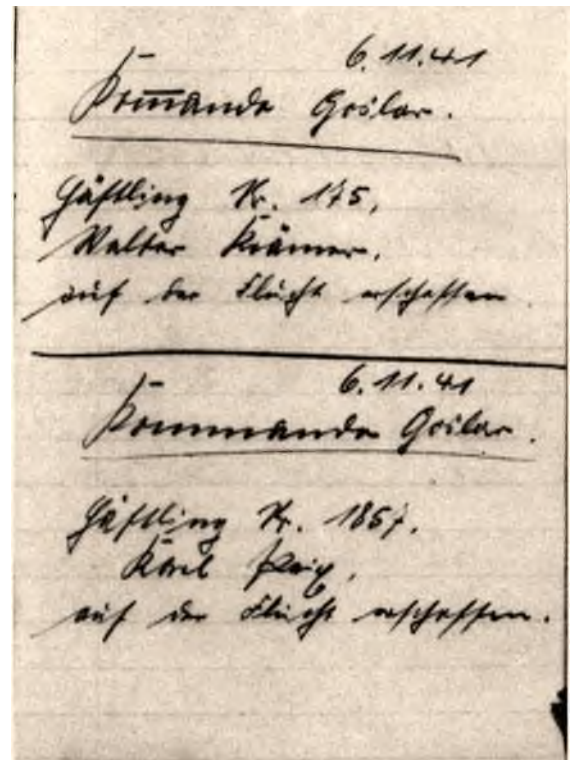 6.11.41
Kom̅ando Goslar.
Häftling Nr. 175,
Walter Krämer,
auf der Flucht erschossen
6.11.41
Kommando Goslar.
Häftling Nr. 1857,
Karl Peix,
auf der Flucht erschossen.